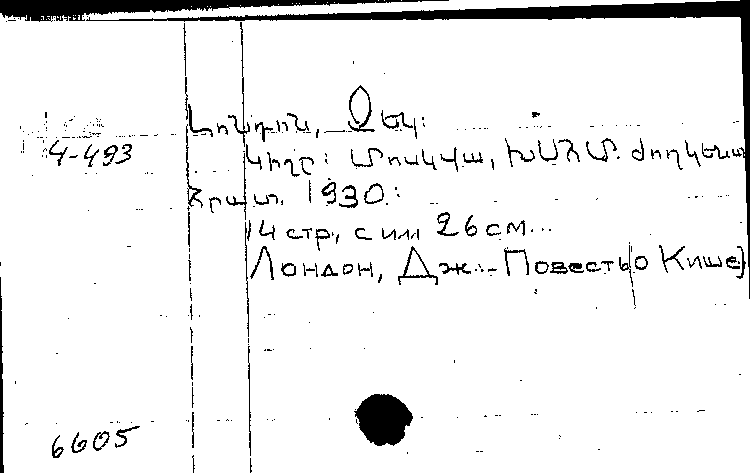 Լոնդոն, Ջեկ:
4-493
Կիշը: Մոսկվա, ԽՍՀՄ ժողկենտ
Հրատ. 1930:
14 стр, с илл 26 см...
Лондон, Дж.-Повесть о Кише]
6605